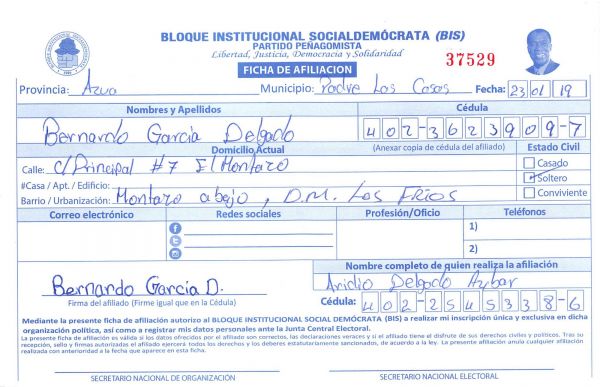 BLOQUE INSTITUCIONAL SOCIALDEMÓCRATA (BIS)
PARTIDO PEÑAGOMISTA
Libertad, Justicia, Democracia y Solidaridad
37529
FICHA DE AFILIACION
Provincia: Azua Municipio: Padre Las Casas Fecha: 23 01 19
Nombres y Apellidos Cédula
Bernardo García Delgado 402-3623909-7
Domicilio Actual (Anexar copia de cédula del afiliado) Estado Civil
Calle: C/Principal #7 El Montazo Casado
#Casa / Apt. / Edificio: Soltero
Barrio / Urbanización: Montazo abajo, D.M. Los Fríos Conviviente
Correo electrónico Redes sociales Profesión/Oficio Teléfonos
1)
2)
Nombre completo de quien realiza la afiliación
Bernardo García D. Aridio Delgado Aybar
Firma del afiliado (Firme igual que en la Cédula) Cédula: 402-2545338-6
Mediante la presente ficha de afiliado autorizo al BLOQUE INSTITUCIONAL SOCIAL DEMÓCRATA (BIS) a realizar mi inscripción única y exclusiva en dicha
organización política, así como a registrar mis datos personales ante la Junta Central Electoral.
La presente ficha de afiliación es válida si los datos ofrecidos por el afiliado son correctos, las declaraciones veraces y si el afiliado tiene el disfrute de sus derechos civiles y políticos. Tras su
recepción, sello y firmas autorizadas el afiliado ejercerá todos los derechos y los deberes estatutariamente sancionados, de acuerdo a la ley. La presente afiliación anula cualquier afiliación
realizada con anterioridad a la fecha que aparece en esta ficha.
SECRETARIO NACIONAL DE ORGANIZACIÓN SECRETARIO NACIONAL ELECTORAL